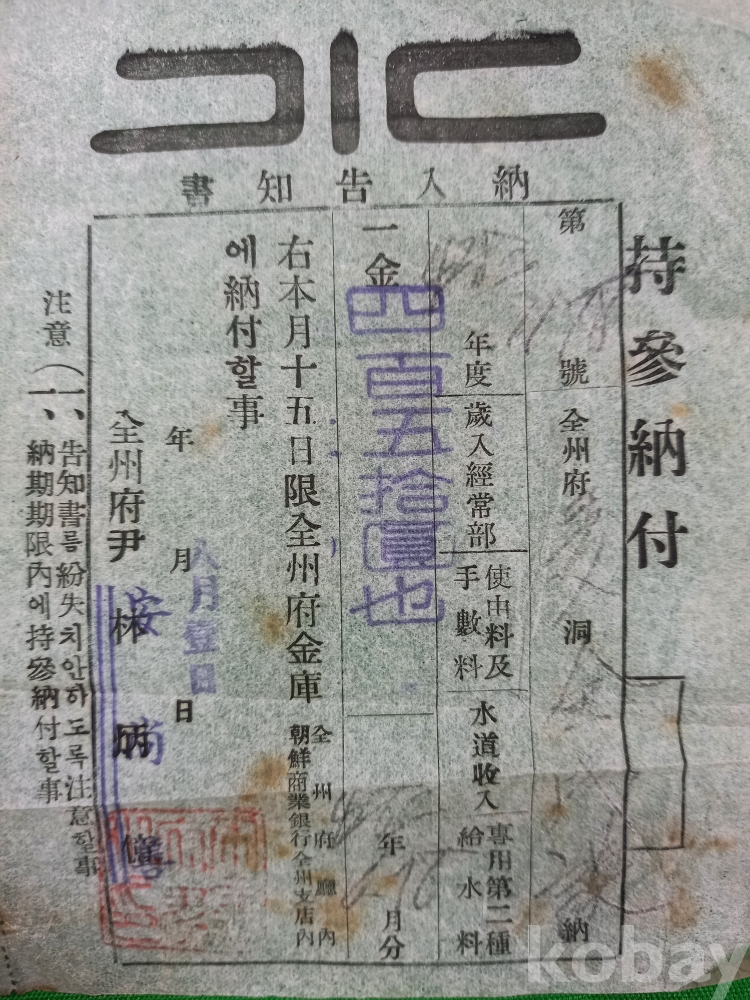 納入告知書
持參納付
第 號 全州府 洞 納
年度 歲入經常部 使用料及手數料 水道收入 專用第二種給水料
一金 四百五拾圓也 年 月分
右本月十五日限全州府金庫
全州府廳內
朝鮮商業銀行全州支店內
에納付할事
年 月 日
八月壹日
全州府尹 林
安
注意(一、告知書를紛失치안하도록注意할事
一、納期期限內에持參納付할事
kobay